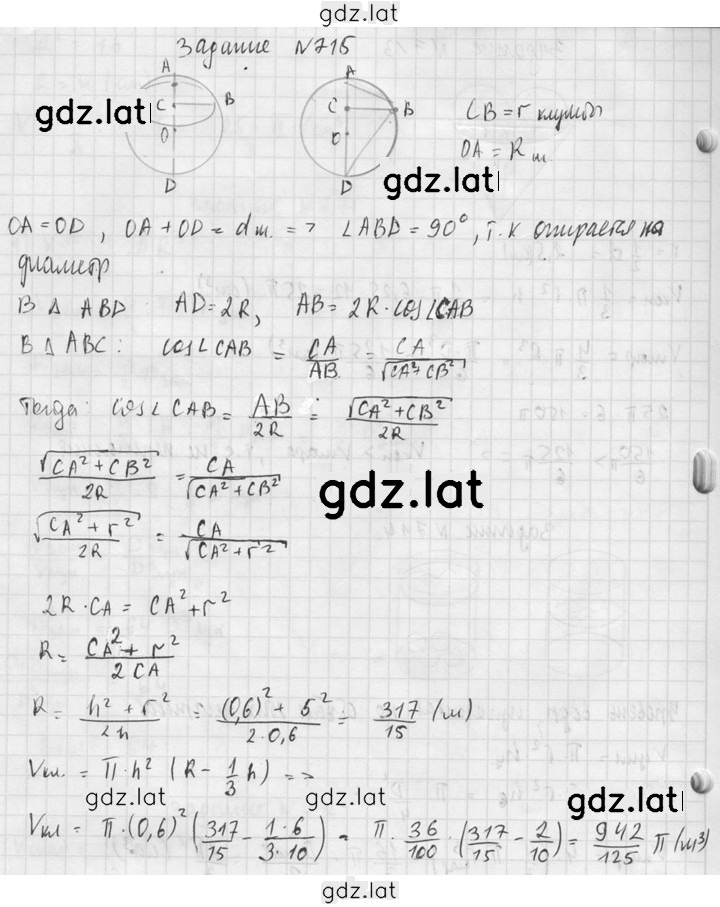 gdz.lat
Задание N715
A A
C B C B CB = r клумбы
O O OA = R ш.
D D
gdz.lat
gdz.lat
OA = OD, OA + OD = d ш. => ∠ABD = 90°, т.к опирается на
диаметр
В Δ ABD AD = 2R, AB = 2R · cos∠CAB
В Δ ABC: cos∠CAB = CA/AB = CA/√(CA²+CB²)
Тогда: cos∠CAB = AB/2R = √(CA²+CB²)/2R
√(CA²+CB²)/2R = CA/√(CA²+CB²)
gdz.lat
√(CA²+r²)/2R = CA/√(CA²+r²)
2R·CA = CA²+r²
R = (CA²+r²)/2CA
R = (h²+r²)/2h = ((0,6)²+5²)/2·0,6 = 317/15 (м)
Vкл. = π·h² (R - 1/3 h) =>
gdz.lat gdz.lat gdz.lat
Vкл = π·(0,6)² (317/15 - 1·6/3·10) = π · 36/100 · (317/15 - 2/10) = 942/125 π (м³)
gdz.lat